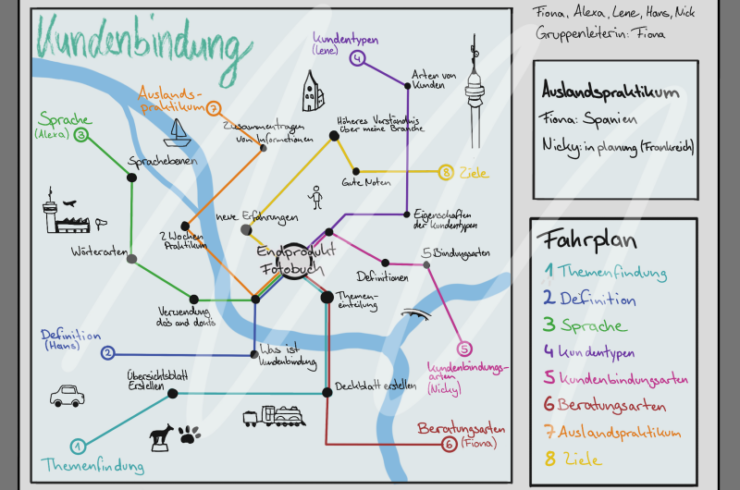 Kundenbindung
Fiona, Alexa, Lene, Hans, Nick
Gruppenleiterin: Fiona
Kundentypen
(Lene)
4
Arten von
Kunden
Auslands-
praktikum
7
Sprache
(Alexa)
3
Zusammentragen
von Informationen
Höheres Verständnis
über meine Branche
Sprachebenen
Gute Noten
8 Ziele
neue Erfahrungen
Eigenschaften
der Kundentypen
2 Wochen
Praktikum
Wörterarten
Endprodukt
Fotobuch
5 Bindungsarten
Definitionen
Verwendung
do's and dont's
Themen-
einteilung
Definition
(Hans)
2
Was ist
Kundenbindung
5
Kundenbindungs-
arten
(Nicky)
Übersichtsblatt
Erstellen
Deckblatt erstellen
Beratungsarten
6 (Fiona)
1
Themenfindung
Auslandspraktikum
Fiona: Spanien
Nicky: in planung (Frankreich)
Fahrplan
1 Themenfindung
2 Definition
3 Sprache
4 Kundentypen
5 Kundenbindungsarten
6 Beratungsarten
7 Auslandspraktikum
8 Ziele